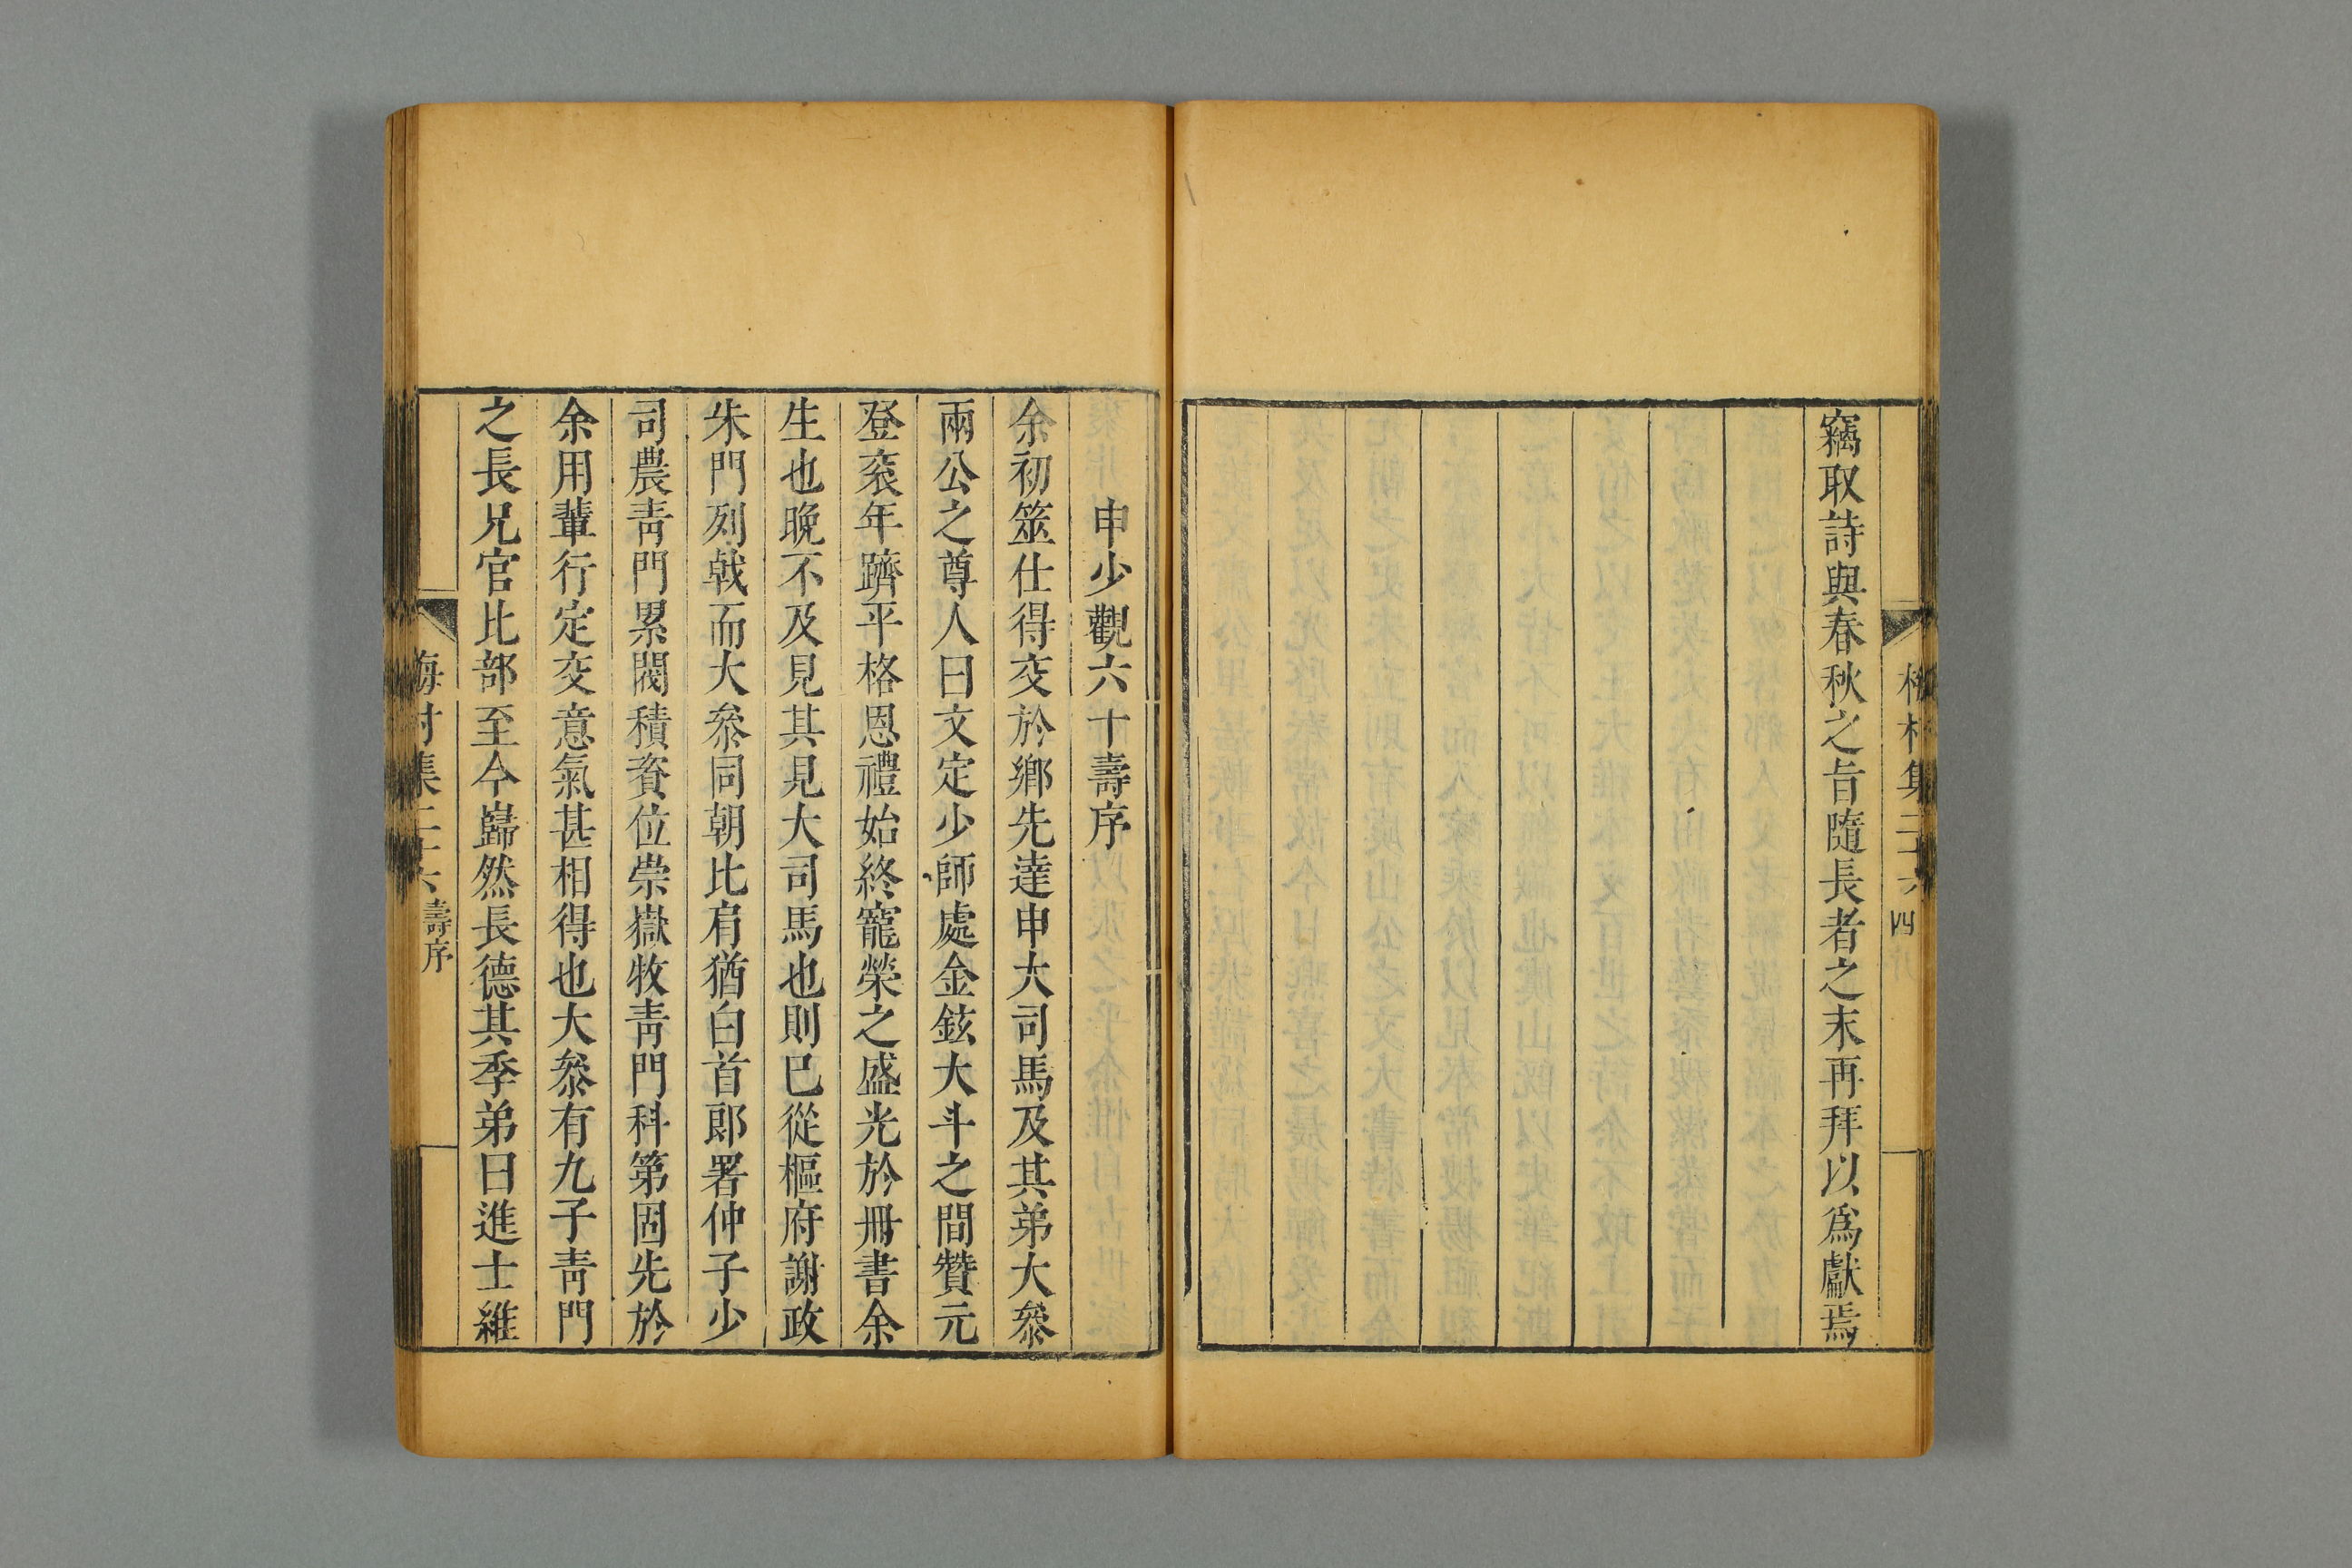 梅村集二十六
四
竊取詩與春秋之旨隨長者之末再拜以爲獻焉
申少觀六十壽序
余初筮仕得交於鄉先達申大司馬及其弟大叅
兩公之尊人曰文定少師處金鉉大斗之間贊元
登衮年躋平格恩禮始終寵榮之盛光於冊書余
生也晚不及見其見大司馬也則巳從樞府謝政
朱門列戟而大叅同朝比肩猶白首郎署仲子少
司農靑門累閥積資位崇嶽牧靑門科第固先於
余用輩行定交意氣甚相得也大叅有九子靑門
之長兄官比部至今巋然長德其季弟曰進士維
梅村集二十六
壽序